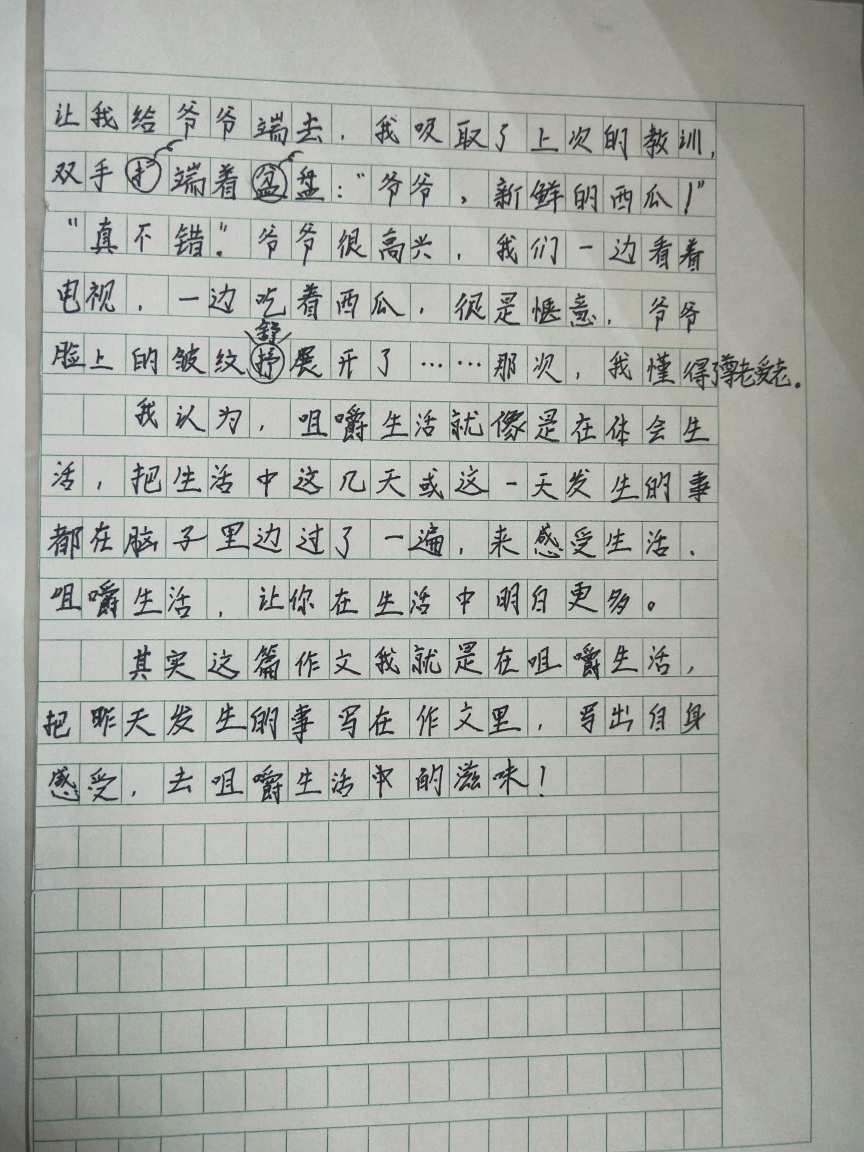 让我给爷爷端去，我吸取了上次的教训，
双手端着盘：“爷爷，新鲜的西瓜！”
“真不错”。爷爷很高兴，我们一边看着
电视，一边吃着西瓜，很是惬意，爷爷
脸上的皱纹舒展开了……那次，我懂得了尊老爱老。
我认为，咀嚼生活就像是在体会生
活，把生活中这几天或这一天发生的事
都在脑子里边过了一遍，来感受生活、
咀嚼生活，让你在生活中明白更多。
其实这篇作文我就是在咀嚼生活，
把昨天发生的事写在作文里，写出自身
感受，去咀嚼生活中的滋味！